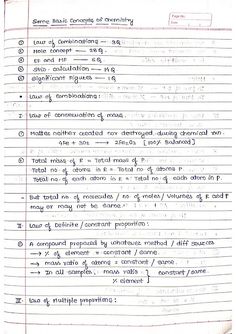 Some Basic Concepts of Chemistry
Page No.
Date
① Law of Combinations - 3Q.
② Mole concept - 28Q.
③ EF and MF - 6Q
④ Stio. calculation - 15Q
⑤ Significant figures - 1Q.
• Law of combinations:
I Law of conservation of mass:
① Matter neither created nor destroyed during chemical rxn.
4Fe + 3O2 → 2Fe2O3 [100% Balanced]
② Total mass of R = Total mass of P.
Total no. of atoms in R = Total no. of atoms P
Total no. of each atom in R = Total no. of each atom in P.
- But total no. of molecules / no. of moles / volumes of R and P
may or may not be same.
II Law of definite / constant proportion:
① A compound prepared by whatever method / diff sources
→ % of element = constant / same.
→ mass ratio of atoms = constant / same.
→ In all samples, mass ratio } constant / same.
% element }
III Law of multiple proportions: